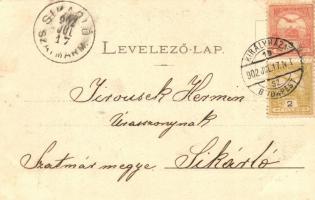 SIKÁRLÓ
902 JUL 17
SZATMÁR M.
LEVELEZŐ-LAP.
KIRÁLYHÁZA
902 JUL. 17. N 1
BUDAPEST
2
Jirousek Hermin
Úrasszonynak
Szatmár megye
Sikárló